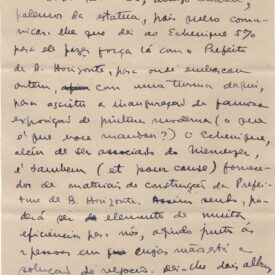 falemos da estatua, pois quero comu-
nicar-lhe que dei ao Echenique 5%
para ele fazer força lá com o Prefeito
de B. Horizonte, para onde embarcam
ontem, com uma turma daqui,
para assistir a inauguração da famosa
exposição de pintura moderna (o que
é que voce mandou?) O Echenique,
alem de ser associado do Niemeyer,
é tambem (et pour cause) fornece-
dor de materiais de construção da Prefei-
tura de B. Horizonte. Assim sendo, po-
derá ser elemento de muita
eficiencia para nós, agindo junto ás
pessoas em cujas mãos está a
solução do negocio. Dei-lhe